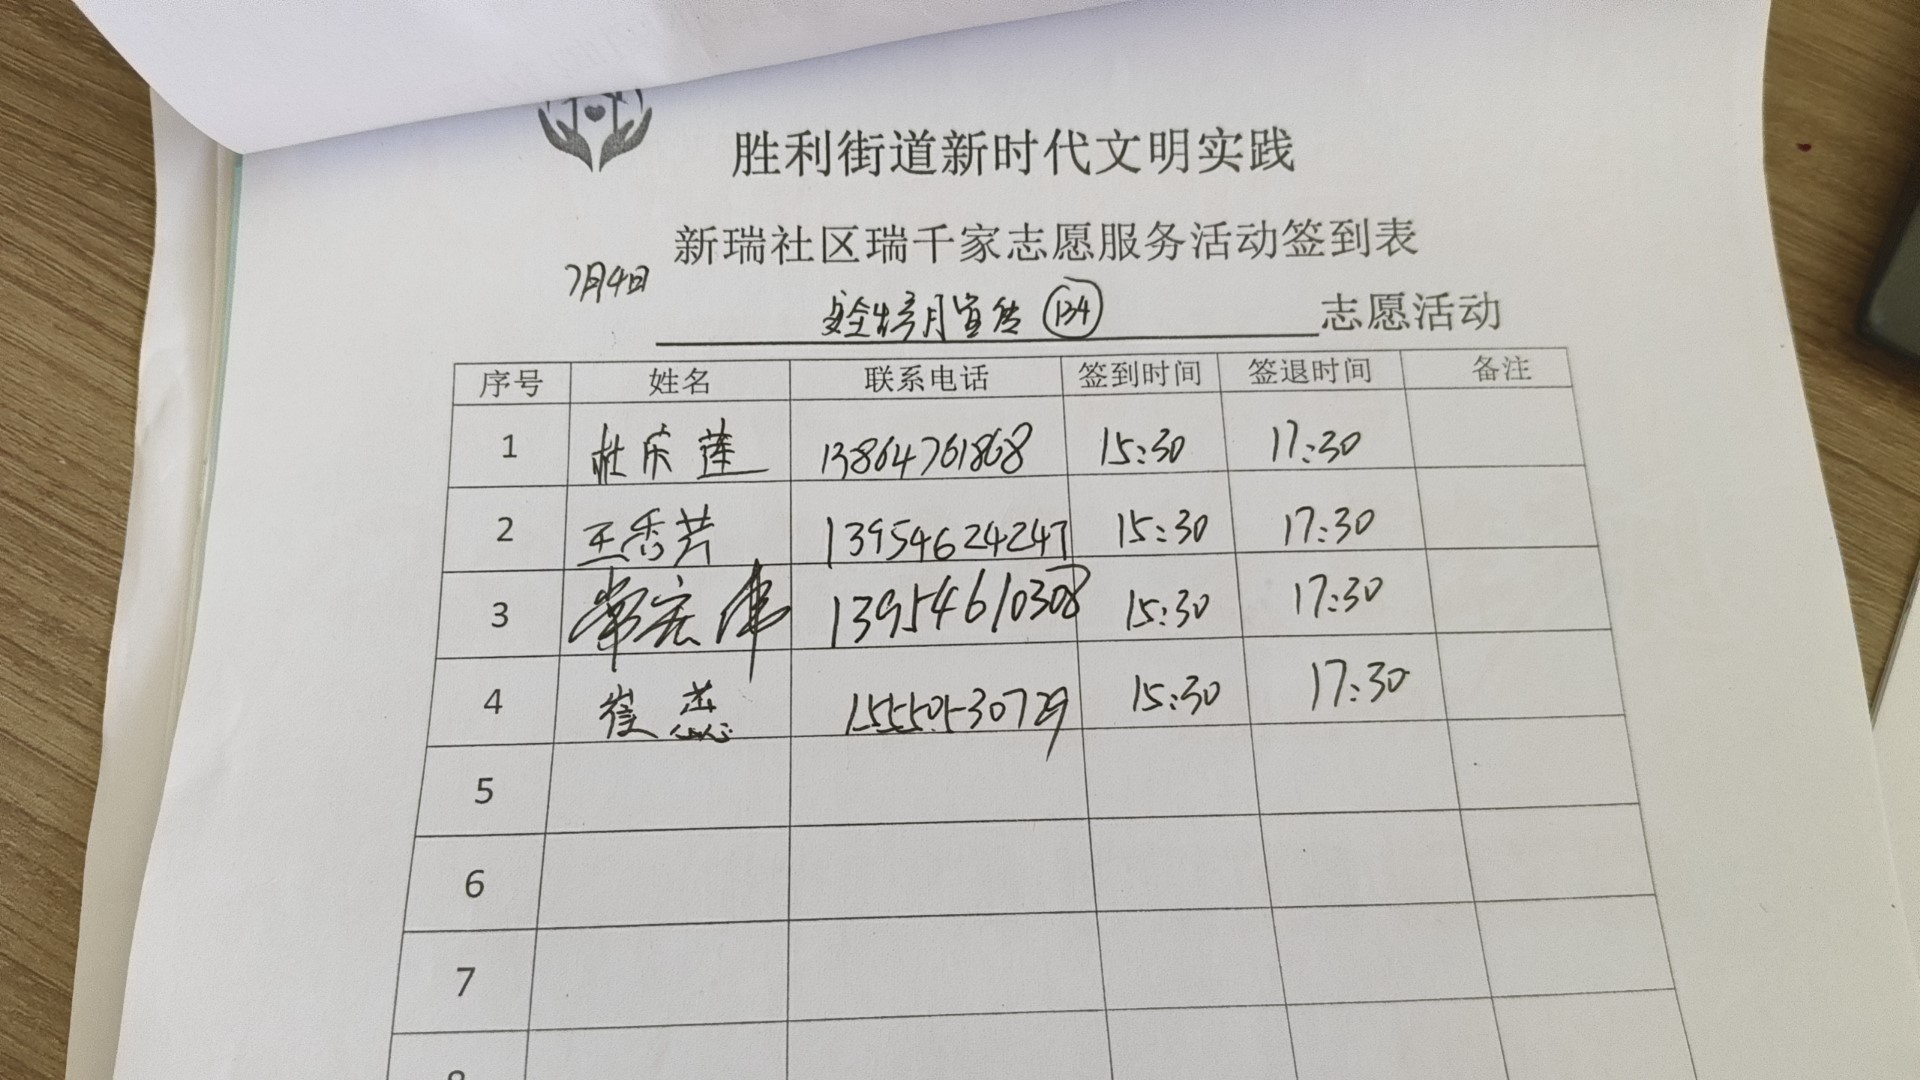 胜利街道新时代文明实践
新瑞社区瑞千家志愿服务活动签到表
7月4日
安全生产月宣传 134 志愿活动
序号 姓名 联系电话 签到时间 签退时间 备注
1 杜庆莲 13864761868 15:30 17:30
2 王秀芳 13954624247 15:30 17:30
3 常宏伟 13954610308 15:30 17:30
4 崔蕊 15550530729 15:30 17:30
5
6
7
8